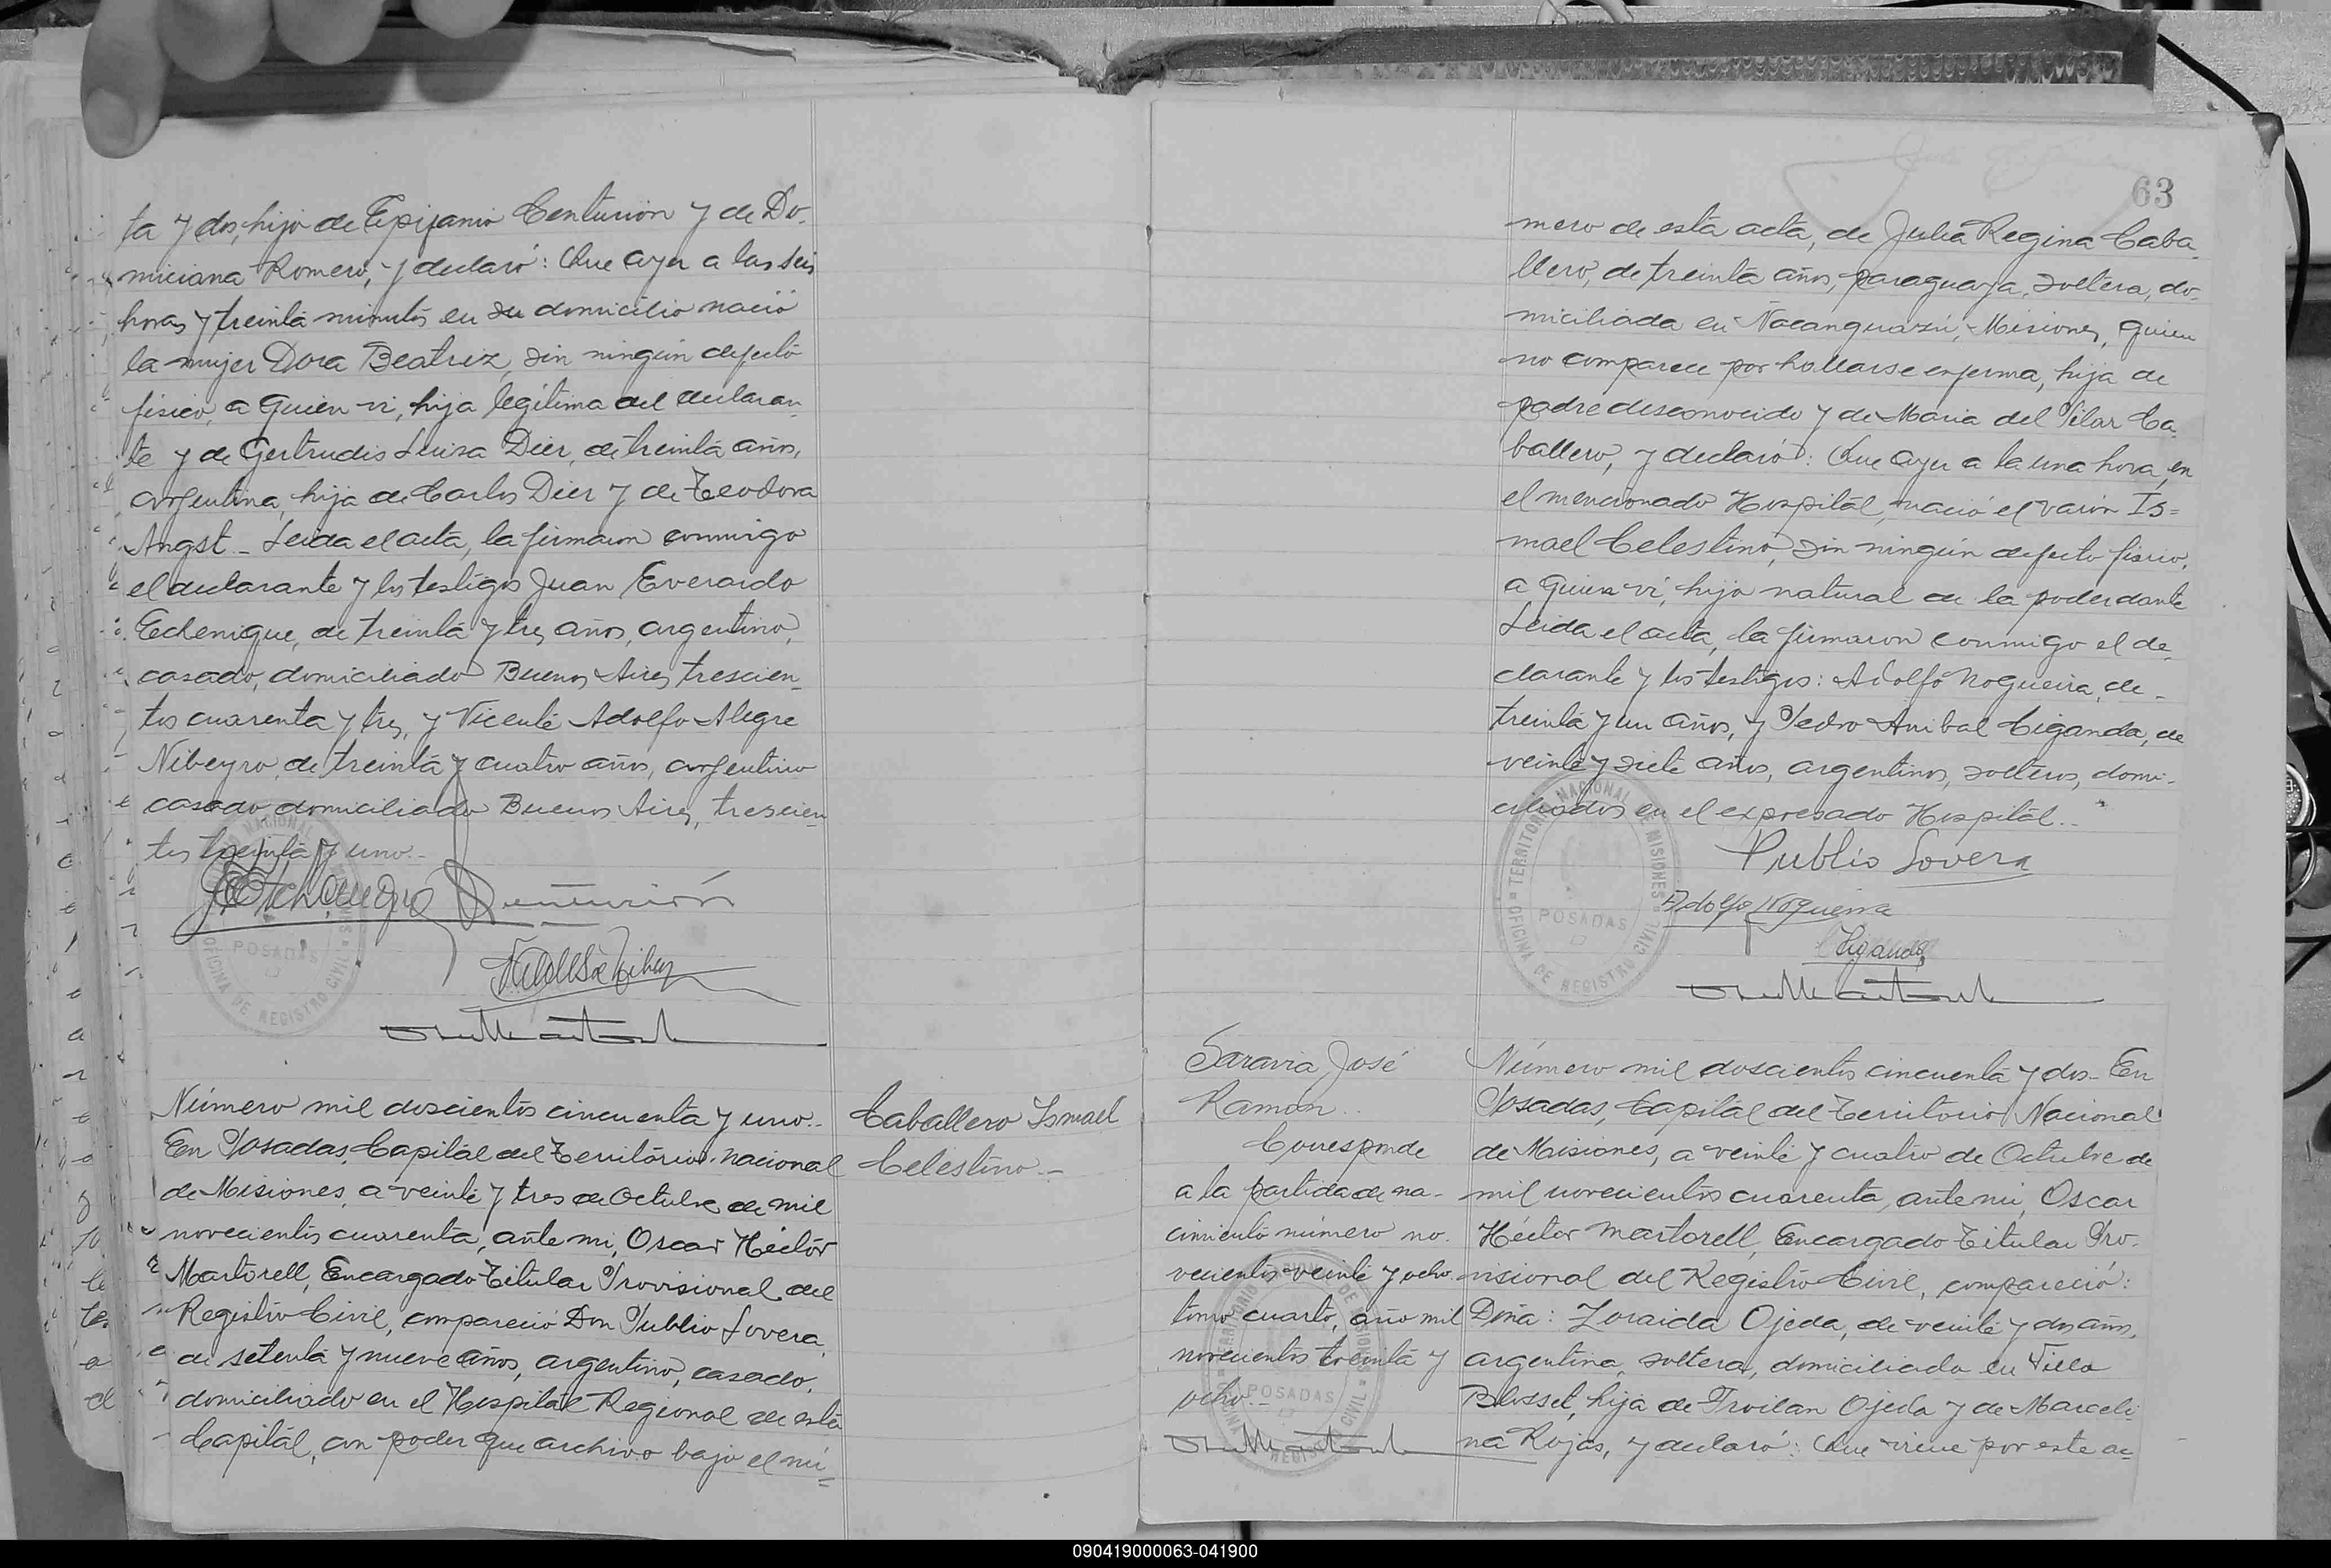 ta y dos, hijo de Epifanio Centurión y de Do-
miciana Romero, y declaró: Que ayer a las seis
horas y treinta minutos en su domicilio nació
la mujer Dora Beatriz, sin ningún defecto
físico, a quien vi, hija legítima del declaran-
te y de Gertrudis Luisa Dier, de treinta años,
argentina, hija de Carlos Dier y de Teodora
Angst - Leida el acta, la firmaron conmigo
el declarante y los testigos Juan Everardo
Echenique, de treinta y tres años, argentino,
casado, domiciliado Buenos Aires trescien-
tos cuarenta y tres, y Vicente Adolfo Alegre
Nibeyro, de treinta y cuatro años, argentino
casado, domiciliado Buenos Aires, trescien-
tos treinta y uno.-
POSADAS
OFICINA DE REGISTRO CIVIL
Número mil doscientos cincuenta y uno.-
En Posadas, Capital del Territorio Nacional
de Misiones, a veinte y tres de Octubre de mil
novecientos cuarenta, ante mi, Oscar Héctor
Martorell, Encargado Titular Provisional del
Registro Civil, compareció Don Publio Lovera,
de setenta y nueve años, argentino, casado,
domiciliado en el Hospital Regional de esta
Capital, con poder que archivo bajo el nú=
Caballero Ismael
Celestino.-
63
mero de esta acta, de Julia Regina Caba-
llero, de treinta años, paraguaya, soltera, do-
miciliada en Ñacanguazú, Misiones, quien
no comparece por hallarse enferma, hija de
padre desconocido y de Maria del Pilar Ca-
ballero, y declaró: Que ayer a la una hora, en
el mencionado Hospital, nació el varón Is=
mael Celestino, sin ningún defecto físico,
a quien vi, hijo natural de la poderdante
Leida el acta, la firmaron conmigo el de-
clarante y los testigos: Adolfo Nogueira, de
treinta y un años, y Pedro Anibal Ciganda, de
veinte y siete años, argentinos, solteros, domi-
ciliados en el expresado Hospital.-
Publio Lovera
Adolfo Nogueira
Ciganda
TERRITORIO NACIONAL DE MISIONES
POSADAS
OFICINA DE REGISTRO CIVIL
Saravia José
Ramón.-
Corresponde
a la partida de na-
cimiento número no-
vecientos veinte y ocho
tomo cuarto, año mil
novecientos treinta y
ocho.-
POSADAS
Número mil doscientos cincuenta y dos - En
Posadas, Capital del Territorio Nacional
de Misiones, a veinte y cuatro de Octubre de
mil novecientos cuarenta, ante mi, Oscar
Héctor Martorell, Encargado Titular Pro-
visional del Registro Civil, compareció:
Doña: Zoraida Ojeda, de veinte y dos años,
argentina, soltera, domiciliada en Villa
Blosset, hija de Froilan Ojeda y de Marceli-
na Rojas, y declaró: Que viene por este ac-
090419000063-041900